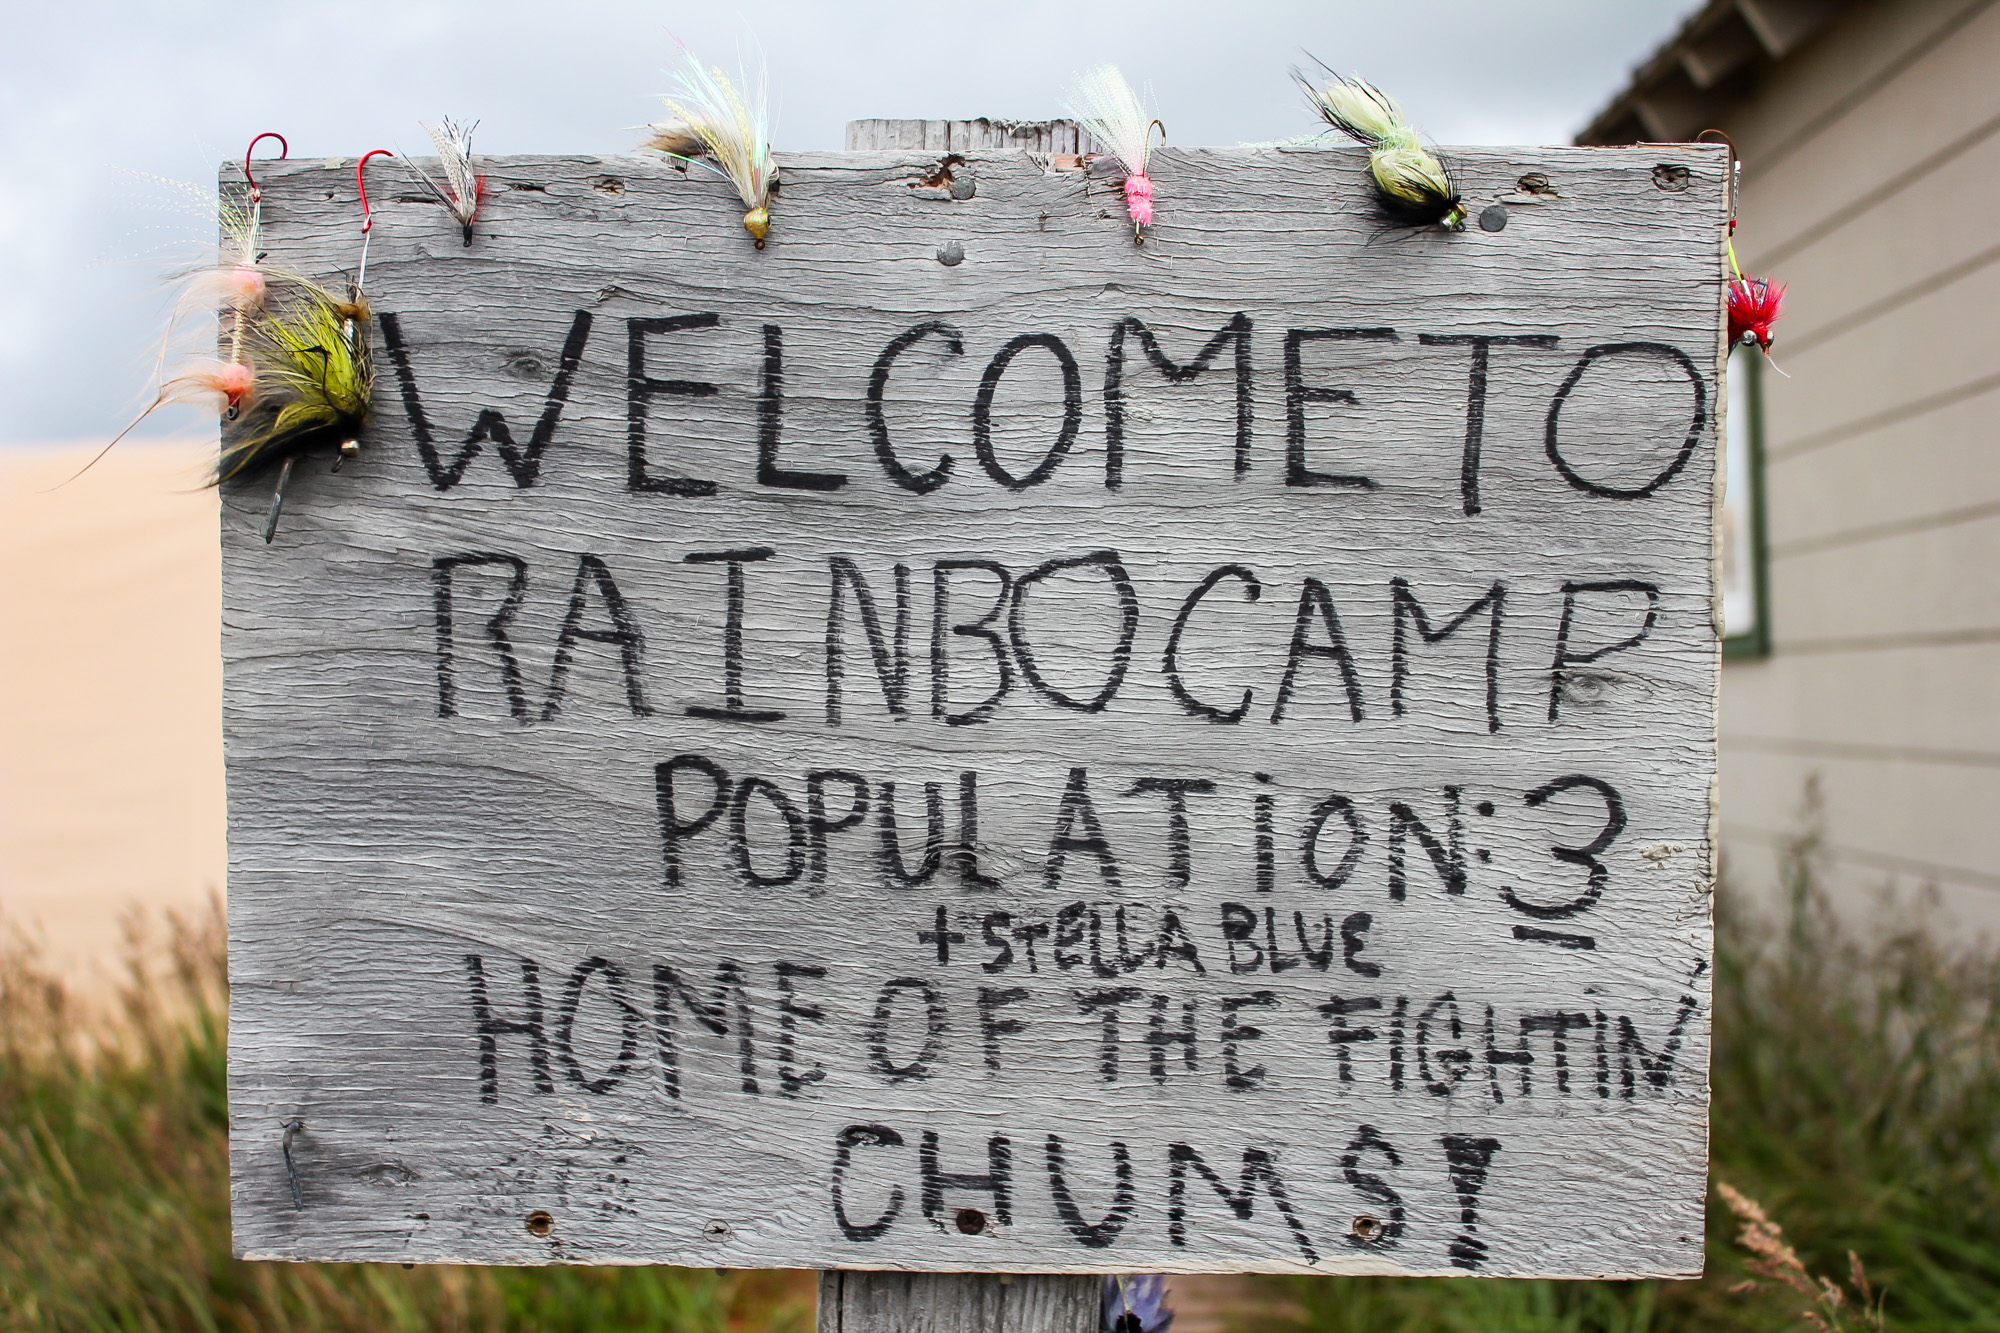 WELCOME TO
RAINBO CAMP
POPULATION: 3
+ STELLA BLUE
HOME OF THE FIGHTIN'
CHUMS!